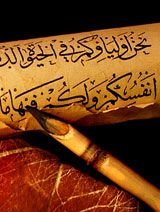 نحن أولياؤكم في الحيوة
أنفسكم ولكم فيها ما